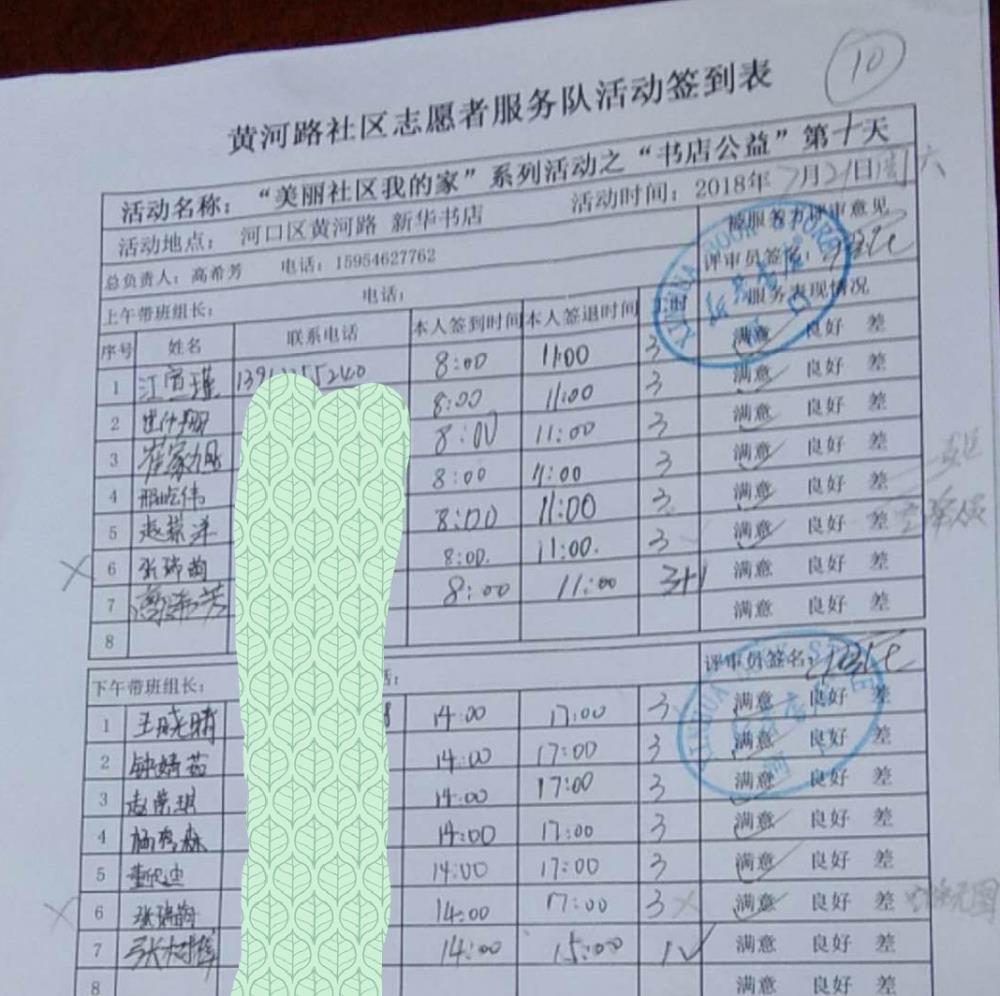 10
黄河路社区志愿者服务队活动签到表
活动名称："美丽社区我的家"系列活动之"书店公益"第十天
活动地点： 河口区黄河路 新华书店 活动时间：2018年7月21日周六
总负责人：高希芳 电话：15954627762 被服务方评审意见
上午带班组长： 电话： 评审员签名：
序号 姓名 联系电话 本人签到时间 本人签退时间 服务表现情况
1 江宜瑾 8:00 11:00 3 满意 良好 差
2 8:00 11:00 3 满意 良好 差
3 崔家旭 8:00 11:00 3 满意 良好 差
4 邢屹伟 8:00 11:00 3 满意 良好 差
5 赵荣洋 8:00 11:00 3 满意 良好 差
6 张瑞茵 8:00. 11:00. 3 满意 良好 差
7 高希芳 8:00 11:00 3+1 满意 良好 差
8 满意 良好 差
下午带班组长： 话： 评审员签名：
1 王晓晴 8 14:00 17:00 3 满意 良好 差
2 钟婧茹 14:00 17:00 3 满意 良好 差
3 赵常琪 14:00 17:00 3 满意 良好 差
4 杨秀森 14:00 17:00 3 满意 良好 差
5 董 迪 14:00 17:00 3 满意 良好 差
6 张瑞茵 14:00 17:00 3 满意 良好 差
7 张树梓 14:00 15:00 1 满意 良好 差
8 满意 良好 差